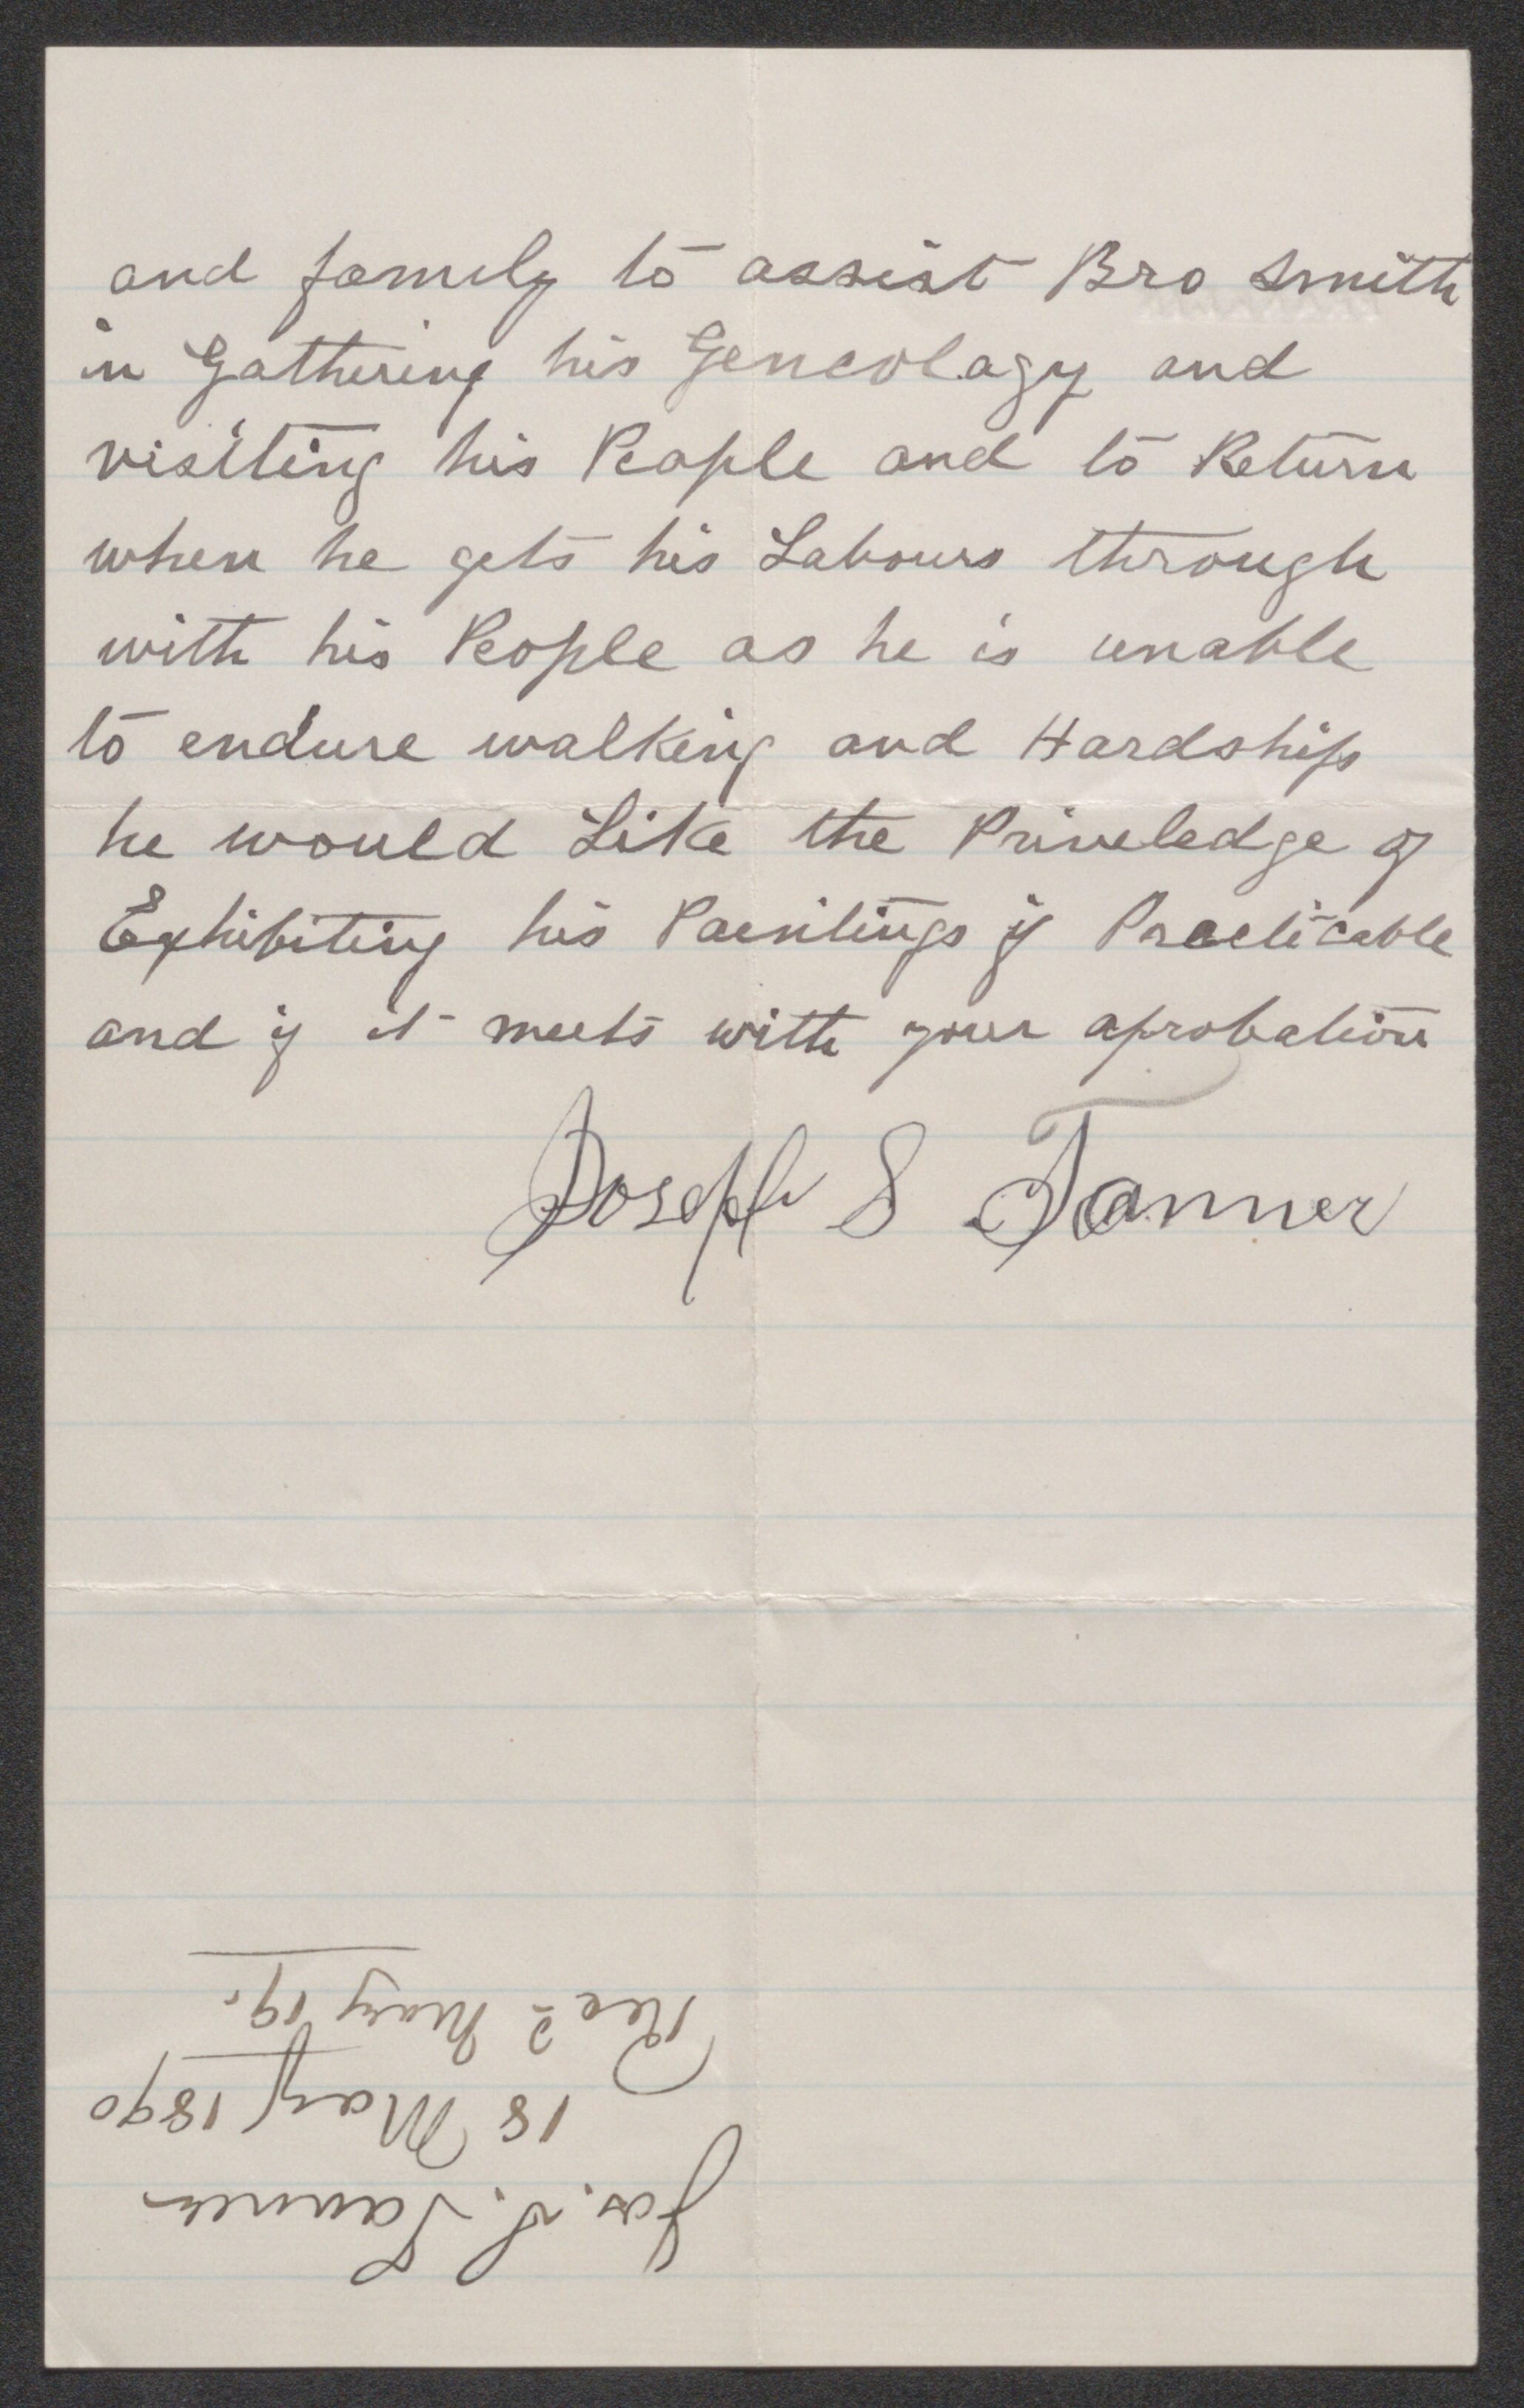 and family to assist Bro Smith
in Gathering his Geneolagy and
visiting his People and to Return
when he gets his Labours through
with his People as he is unable
to endure walking and Hardship
he would Like the Priveledge of
Exhibiting his Paentings if Practicable
and if it meets with your aprobation
Joseph S Tanner
Jos. S. Tanner
18 May 1890
Recd May 19.